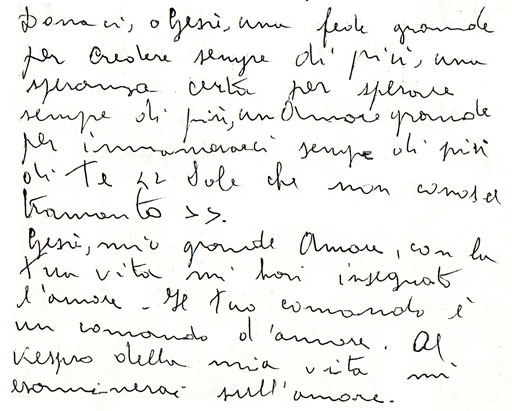 Donaci, o Gesù, una fede grande
per credere sempre di più, una
speranza certa per sperare
sempre di più, un Amore grande
per innamorarci sempre di più
di Te << Sole che non conosce
tramonto >>.
Gesù, mio grande Amore, con la
tua vita mi hai insegnato
l'amore. Il tuo comando è
un comando d'amore. Al
vespro della mia vita mi
esaminerai sull'amore.